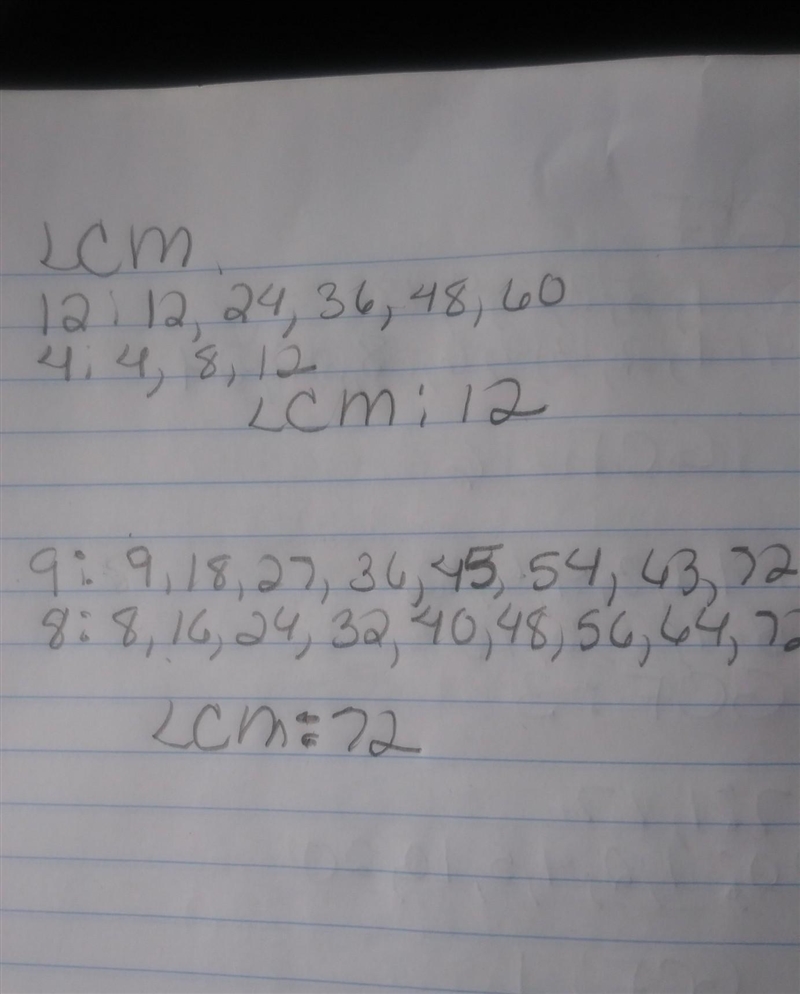 LCM
12: 12, 24, 36, 48, 60
4: 4, 8, 12
LCM: 12
9: 9, 18, 27, 36, 45, 54, 63, 72
8: 8, 16, 24, 32, 40, 48, 56, 64, 72
LCM: 72